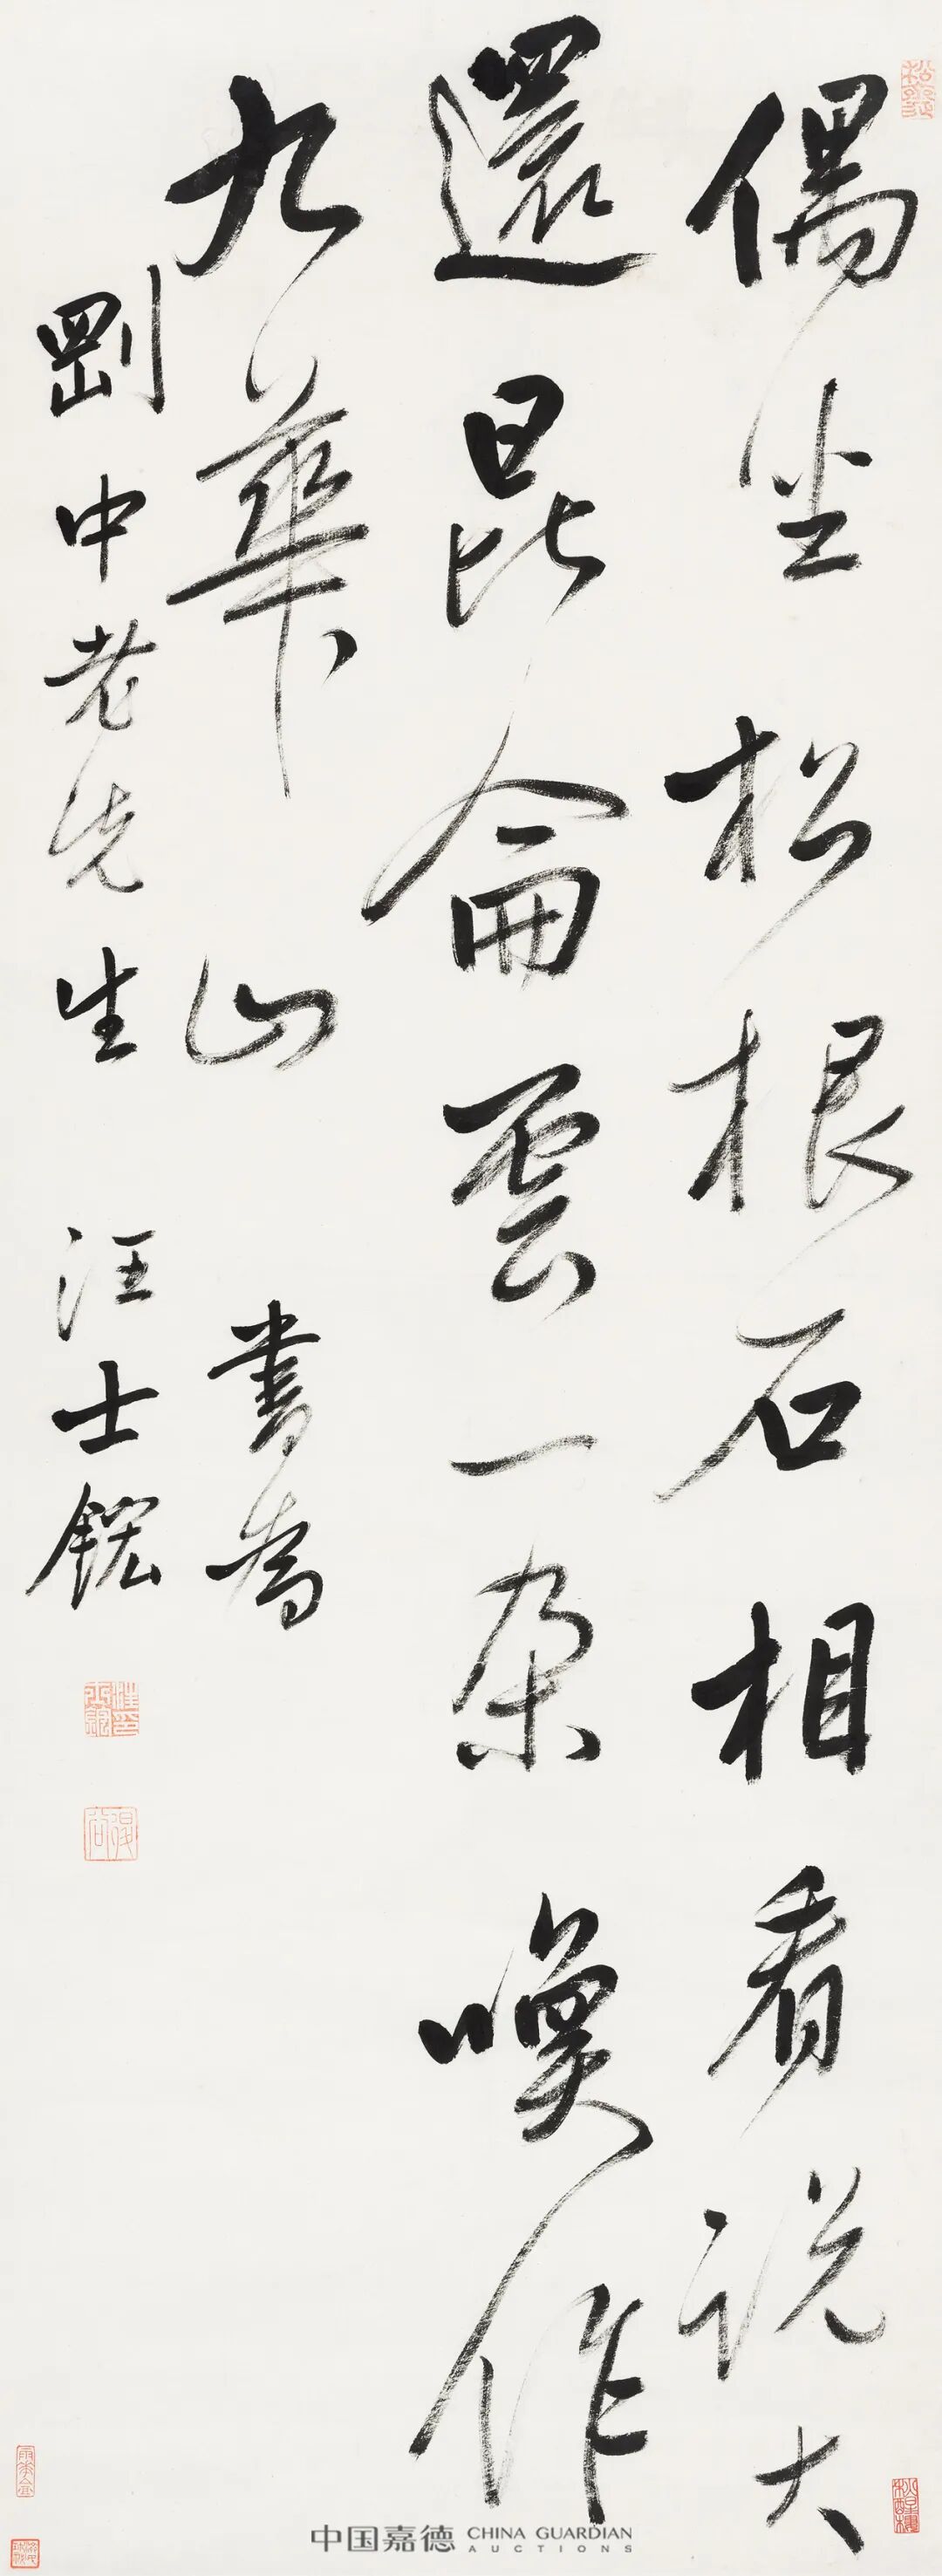 偶坐松根石相看說大
還昆侖雲一朵喚作
九華山 書為
劉中老先生 汪士鋐
中国嘉德 CHINA GUARDIAN
AUCTIONS